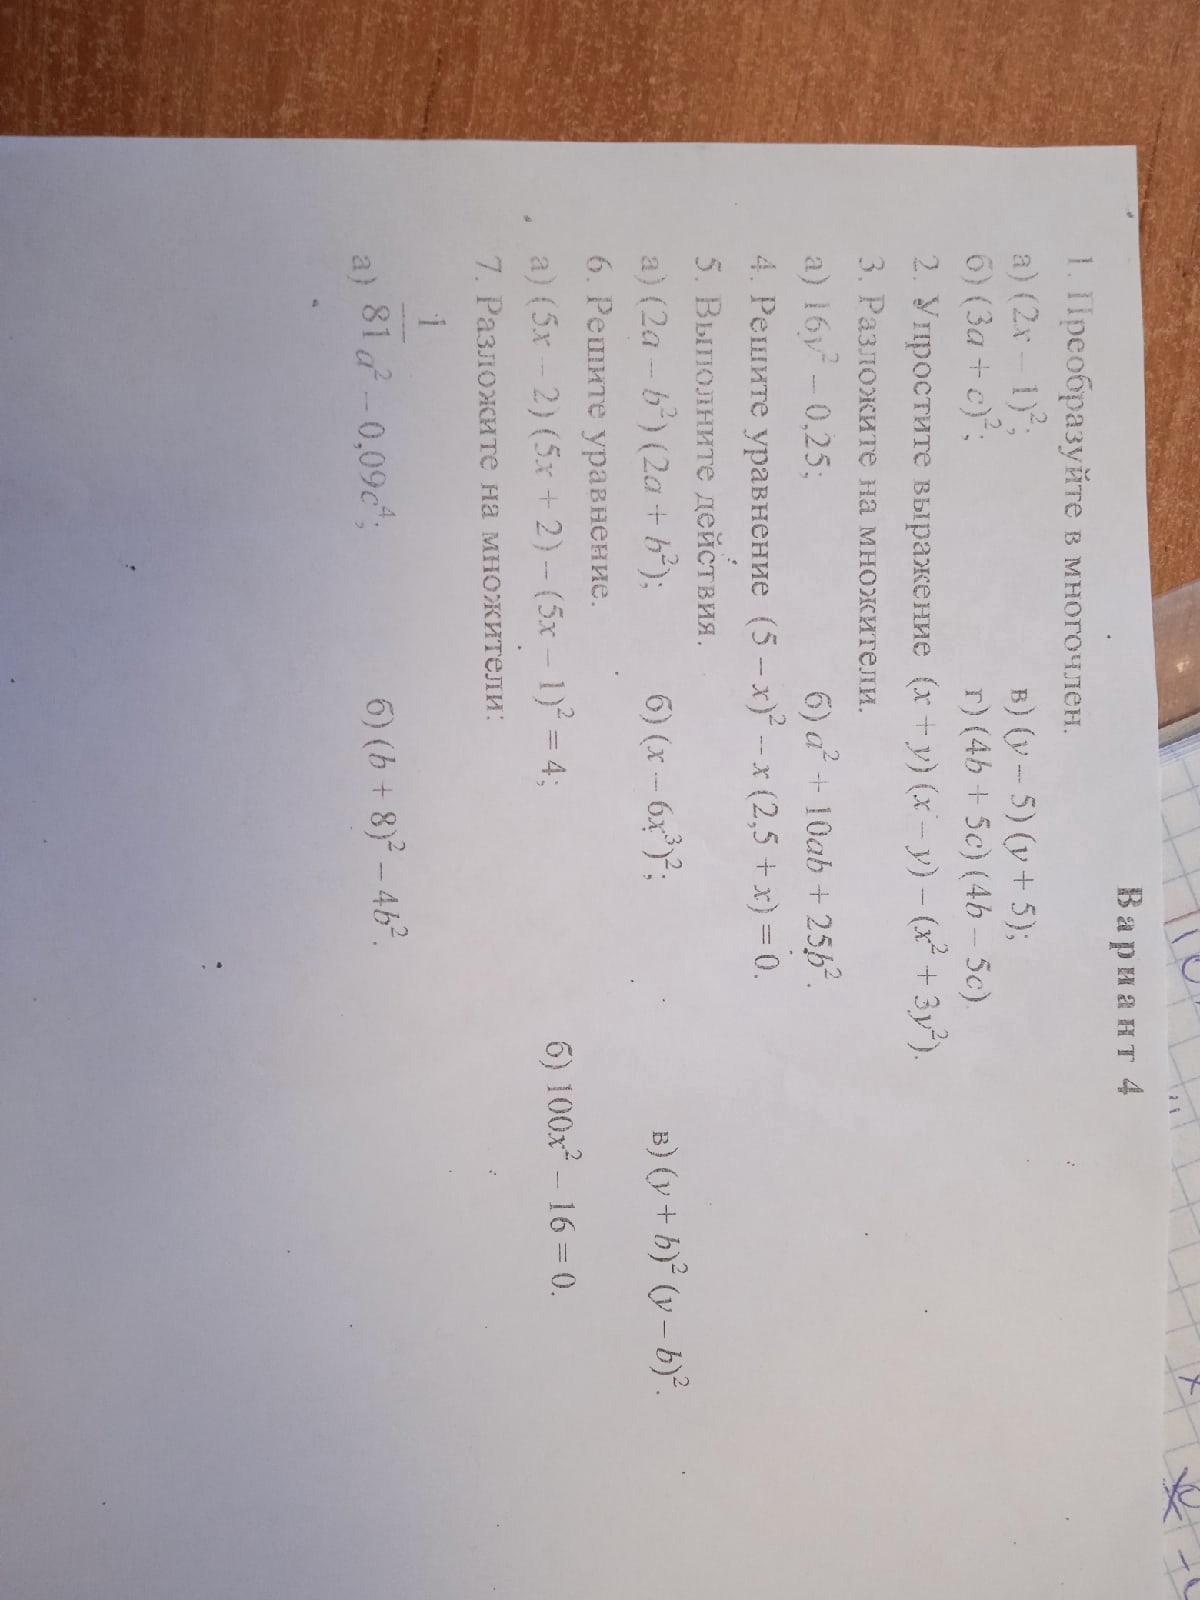 Вариант 4
1. Преобразуйте в многочлен.
а) (2x – 1)²; в) (y – 5) (y + 5);
б) (3a + c)²; г) (4b + 5c) (4b – 5c).
2. Упростите выражение (x + y) (x – y) – (x² + 3y²).
3. Разложите на множители.
а) 16y² – 0,25; б) a² + 10ab + 25b².
4. Решите уравнение (5 – x)² – x (2,5 + x) = 0.
5. Выполните действия.
а) (2a – b²) (2a + b²); б) (x – 6x³)²; в) (y + b)² (y – b)².
6. Решите уравнение.
а) (5x – 2) (5x + 2) – (5x – 1)² = 4; б) 100x² – 16 = 0.
7. Разложите на множители:
а) 1/81 a² – 0,09c⁴; б) (b + 8)² – 4b².